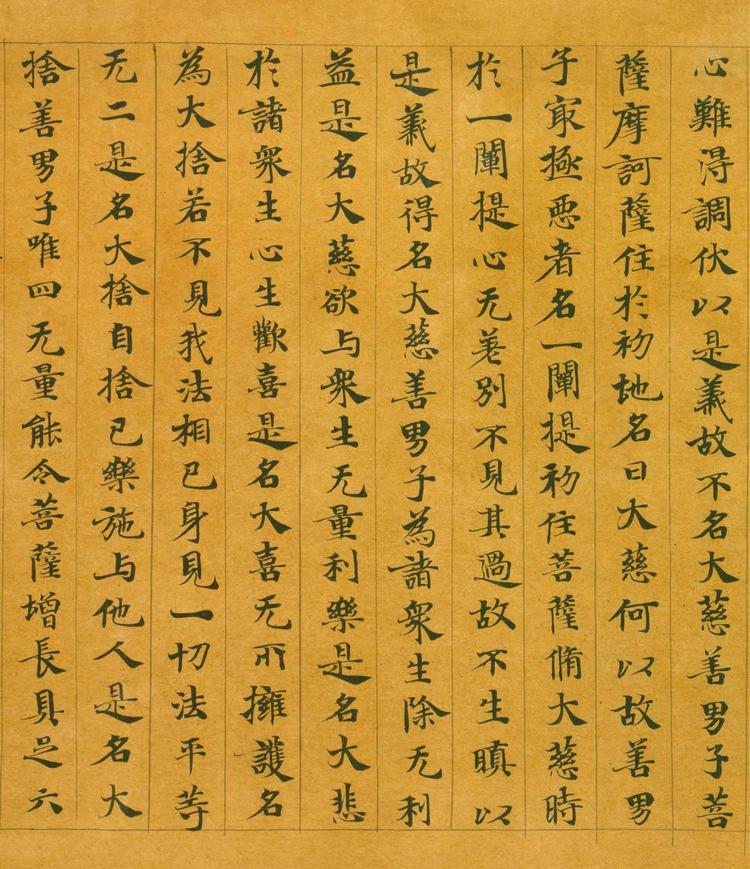 心難淂調伏以是義故不名大慈善男子菩
薩摩訶薩住扵初地名曰大慈何以故善男
子㝡極悪者名一闡提初住菩薩脩大慈時
扵一闡提心无差別不見其過故不生瞋以
是義故得名大慈善男子為諸衆生除无利
益是名大慈欲与衆生无量利樂是名大悲
扵諸衆生心生歡喜是名大喜无所擁護名
為大捨若不見我法相己身見一切法平等
无二是名大捨自捨己樂施与他人是名大
捨善男子唯四无量能令菩薩增長具足六